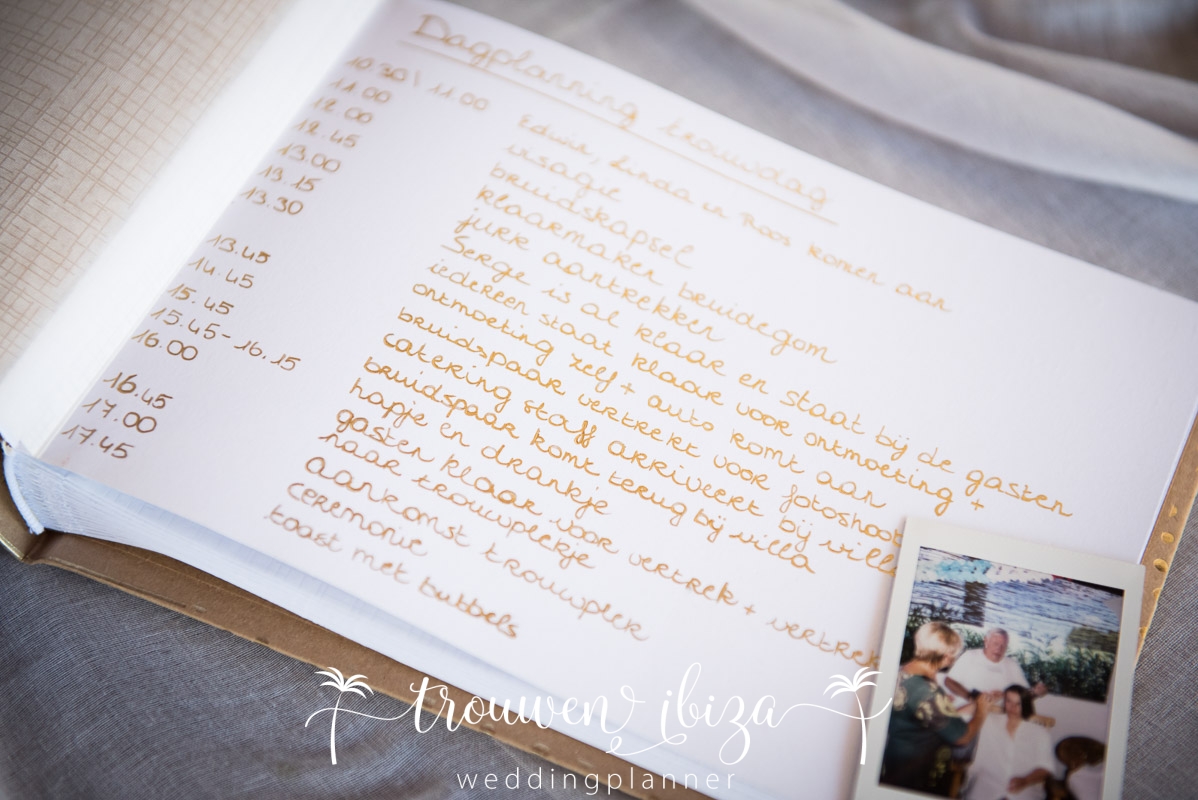 Dagplanning trouwdag
10.30 \ 11.00 Edwin, Linda en Roos komen aan
11.00 visagie
12.00 bruidskapsel
12.45 klaarmaken bruidegom
13.00 jurk aantrekken
13.15 Serge is al klaar en staat bij de gasten
13.30 iedereen staat klaar voor ontmoeting +
ontmoeting zelf + auto komt aan
13.45 bruidspaar vertrekt voor fotoshoot
14.45 catering staff arriveert bij villa
15.45 bruidspaar komt terug bij villa
15.45 - 16.15 hapje en drankje
16.00 gasten klaar voor vertrek + vertrek
naar trouwplekje
16.45 aankomst trouwplek
17.00 ceremonie
17.45 toast met bubbels
trouwen ibiza
weddingplanner